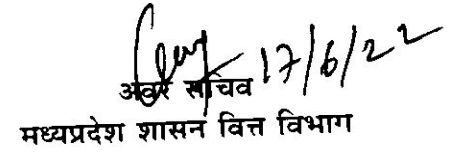 17/6/22
अवर सचिव
मध्यप्रदेश शासन वित्त विभाग